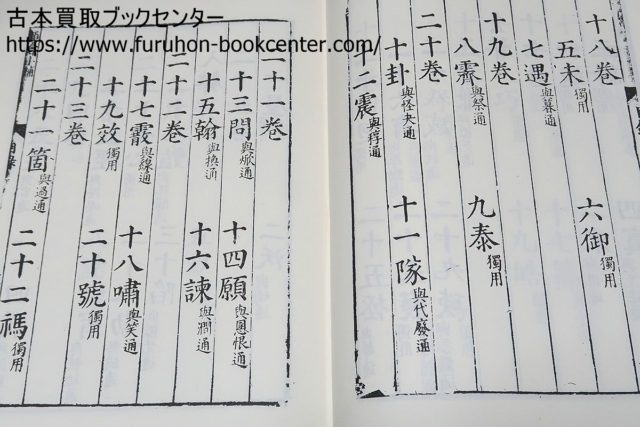 古本買取ブックセンター
https://www.furuhon-bookcenter.com/
十八巻
五未獨用 六御獨用
七遇與暮通
十九巻
八霽與祭通 九泰獨用
二十巻
十卦與怪夬通 十一隊與代廢通
十二震與稕通
二十一巻
十三問與焮通 十四願與慁恨通
十五翰與換通 十六諫與澗通
二十二巻
十七霰與線通 十八嘯與笑通
十九效獨用 二十號獨用
二十三巻
二十一箇與過通 二十二禡獨用